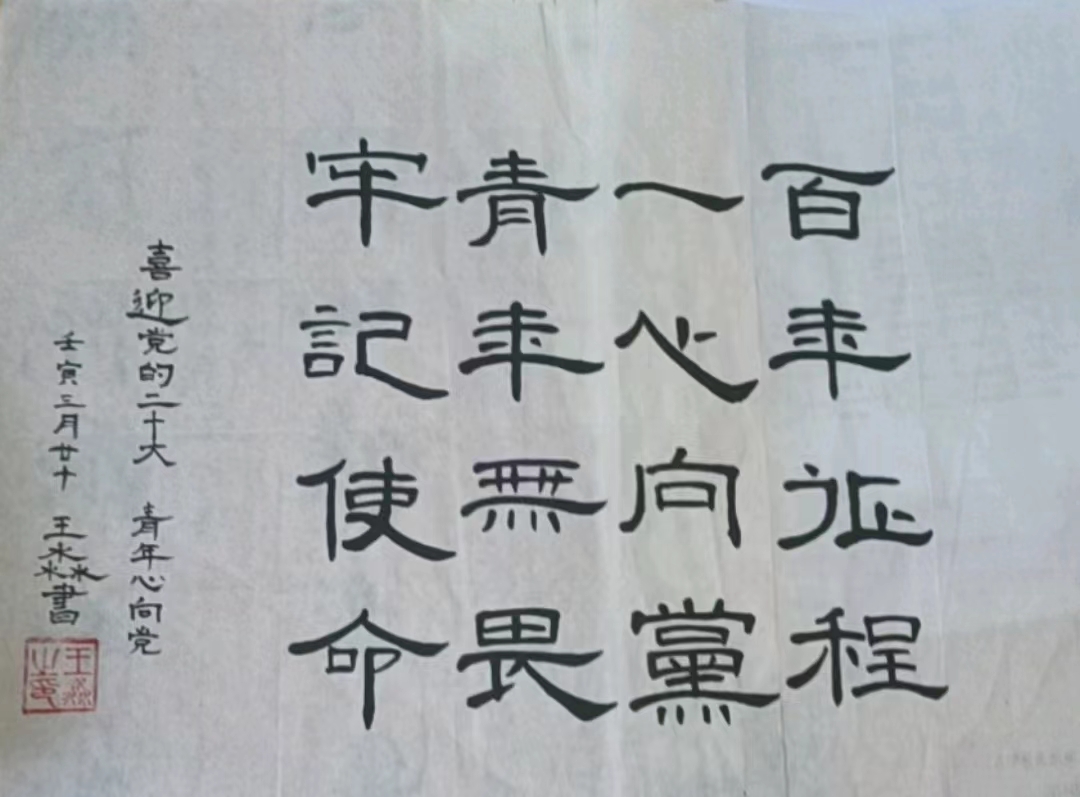 百年征程
一心向黨
青年無畏
牢記使命
喜迎党的二十大 青年心向党
壬寅三月廿十 王淼書
王淼之印